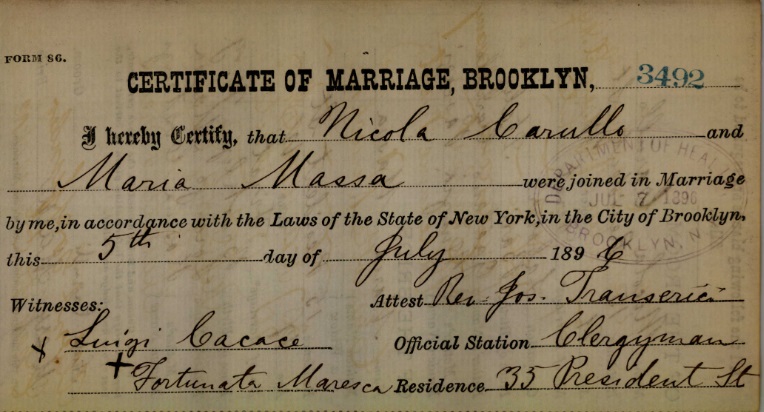 FORM 86.
CERTIFICATE OF MARRIAGE, BROOKLYN, 3492
I hereby Certify, that Nicola Carullo and
Maria Massa were joined in Marriage
by me, in accordance with the Laws of the State of New York, in the City of Brooklyn,
this 5th day of July 1896
DEPARTMENT OF HEALTH
JUL 7 1896
BROOKLYN, N
Witnesses: Attest Rev. Jos. Transerici
X Luigi Cacace Official Station Clergyman
+ Fortunata Maresca Residence 35 President St